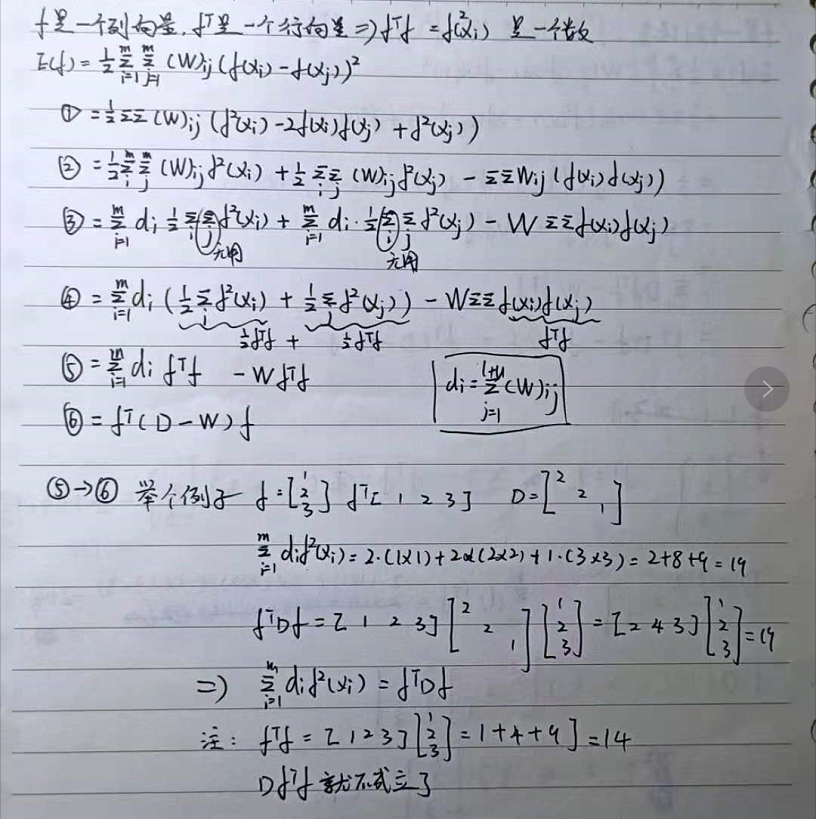 f是一个列向量,fᵀ是一个行向量⇒fᵀf = f²(xᵢ) 是一个数
E(f) = ½ Σᵢ₌₁ᵐ Σⱼ₌₁ᵐ (W)ᵢⱼ (f(xᵢ) - f(xⱼ))²
① = ½ΣΣ (W)ᵢⱼ (f²(xᵢ) - 2f(xᵢ)f(xⱼ) + f²(xⱼ))
② = ½ Σᵢᵐ Σⱼᵐ (W)ᵢⱼ f²(xᵢ) + ½ Σᵢ Σⱼ (W)ᵢⱼ f²(xⱼ) - ΣΣWᵢⱼ (f(xᵢ)f(xⱼ))
③ = Σᵢ₌₁ᵐ dᵢ ½ Σᵢ Σⱼ f²(xᵢ) + Σᵢ₌₁ᵐ dᵢ · ½ Σᵢ Σⱼ f²(xⱼ) - W ΣΣf(xᵢ)f(xⱼ)
无用 无用
④ = Σᵢ₌₁ᵐ dᵢ (½ Σᵢ f²(xᵢ) + ½ Σⱼ f²(xⱼ)) - WΣΣf(xᵢ)f(xⱼ)
½fᵀf + ½fᵀf fᵀf
⑤ = Σᵢ₌₁ᵐ dᵢ fᵀf - W fᵀf
dᵢ = Σⱼ₌₁ˡ⁺ᵘ (W)ᵢⱼ
⑥ = fᵀ(D - W)f
⑤→⑥ 举个例子 f = [1 2 3] fᵀ[1 2 3] D = [2 2 1]
Σᵢ₌₁ᵐ dᵢf²(xᵢ) = 2·(1×1) + 2×(2×2) + 1·(3×3) = 2+8+9 = 19
fᵀDf = [1 2 3] [2 2 1] [1 2 3] = [2 4 3] [1 2 3] = 19
⇒ Σᵢ₌₁ᵐ dᵢf²(xᵢ) = fᵀDf
注: fᵀf = [1 2 3] [1 2 3] = 1+4+9] = 14
DfᵀF 就不成立了